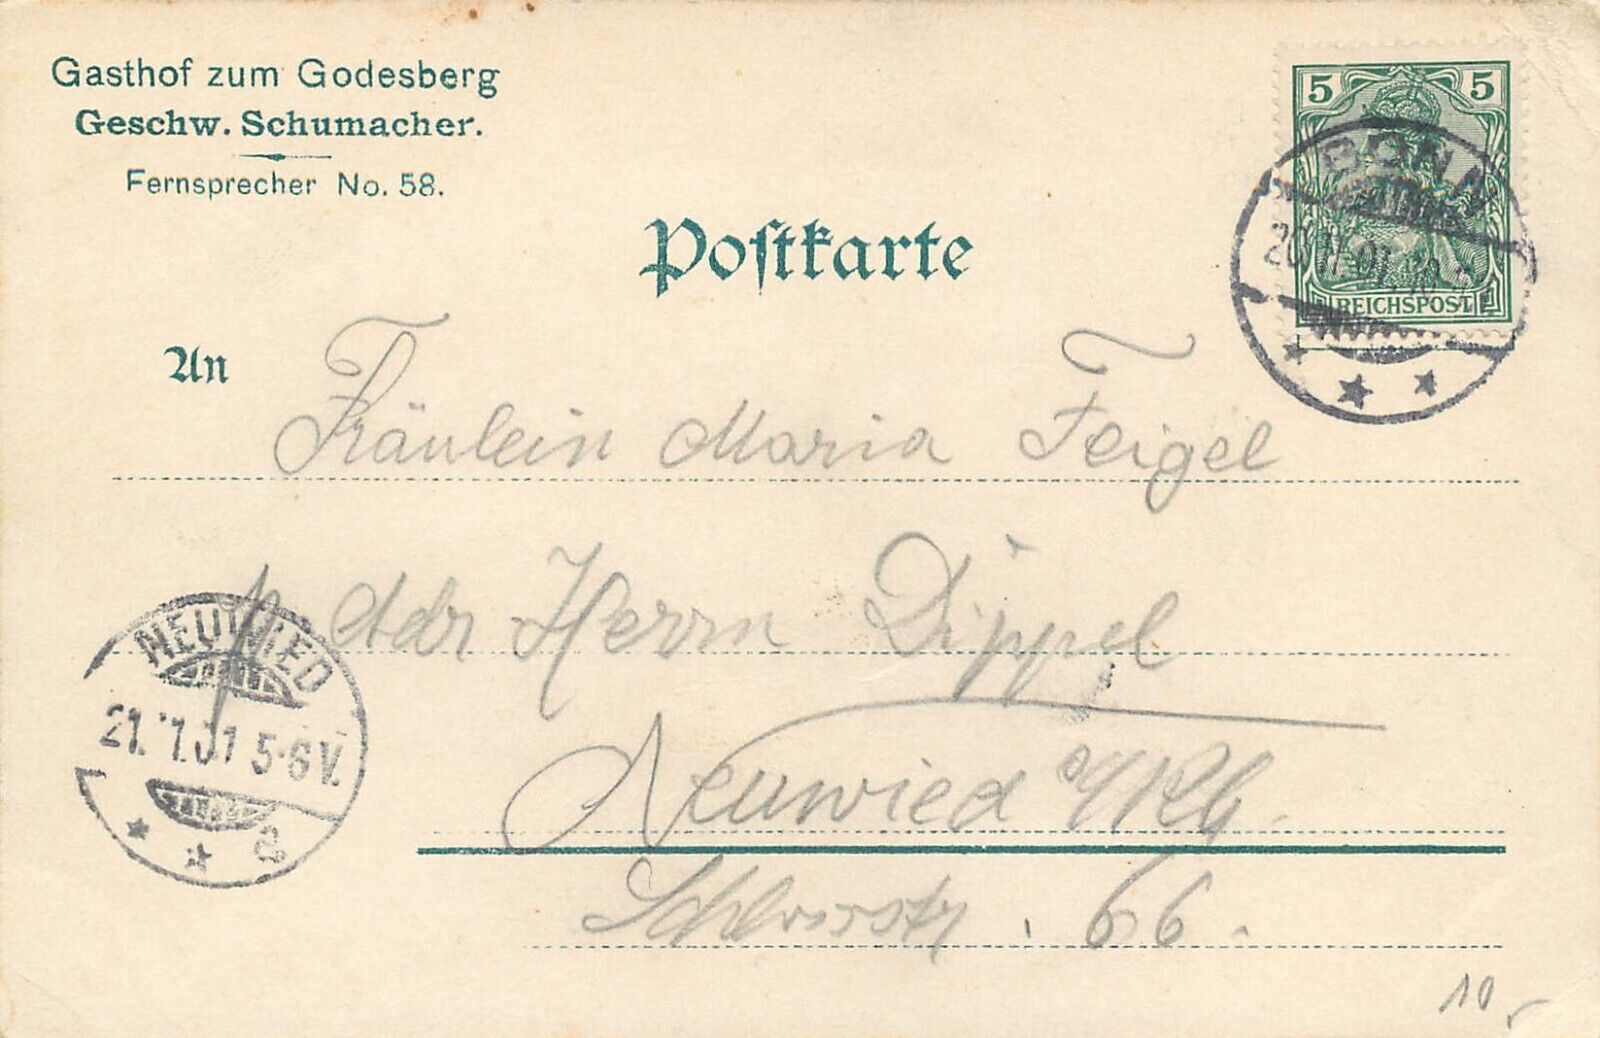 Gasthof zum Godesberg
Geschw. Schumacher.
Fernsprecher No. 58.
5 5
REICHSPOST
BONN
Postkarte
An
Fräulein Maria Feigel
Adr Herrn Dippel
Neuwied a/Rh.
Schlossstr. 66.
NEUWIED
21. 7.01 5-6V.
* * a
10